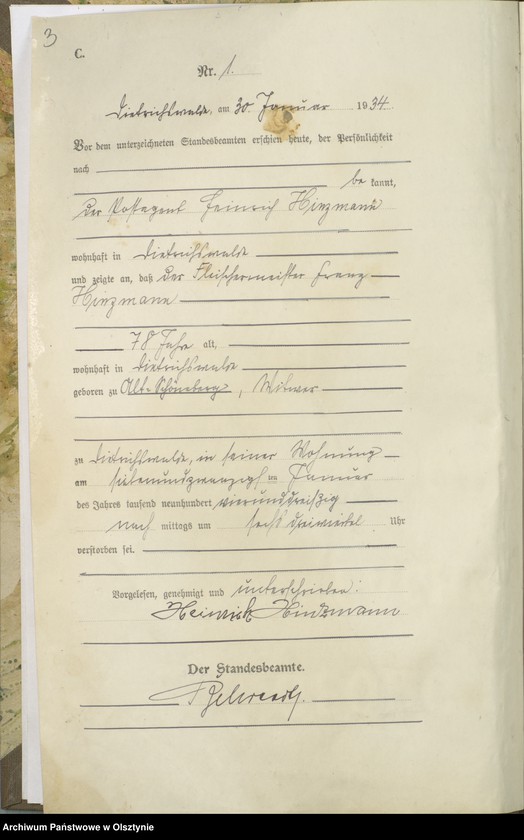 3
C.
Nr. 1.
Dietrichswalde, am 30. Januar 1934.
Vor dem unterzeichneten Standesbeamten erschien heute, der Persönlichkeit
nach
be kannt,
der Postagent Heinrich Hinzmann
wohnhaft in Dietrichswalde
und zeigte an, daß der Fleischermeister Franz
Hinzmann
78 Jahre alt,
wohnhaft in Dietrichswalde
geboren zu Alt-Schöneberg, Witwer
zu Dietrichswalde, in seiner Wohnung
am siebenundzwanzigsten Januar
des Jahres tausend neunhundert vierunddreißig
nach mittags um sechs dreiviertel Uhr
verstorben sei.
Vorgelesen, genehmigt und unterschrieben:
Heinrich Hinzmann
Der Standesbeamte.
Archiwum Państwowe w Olsztynie